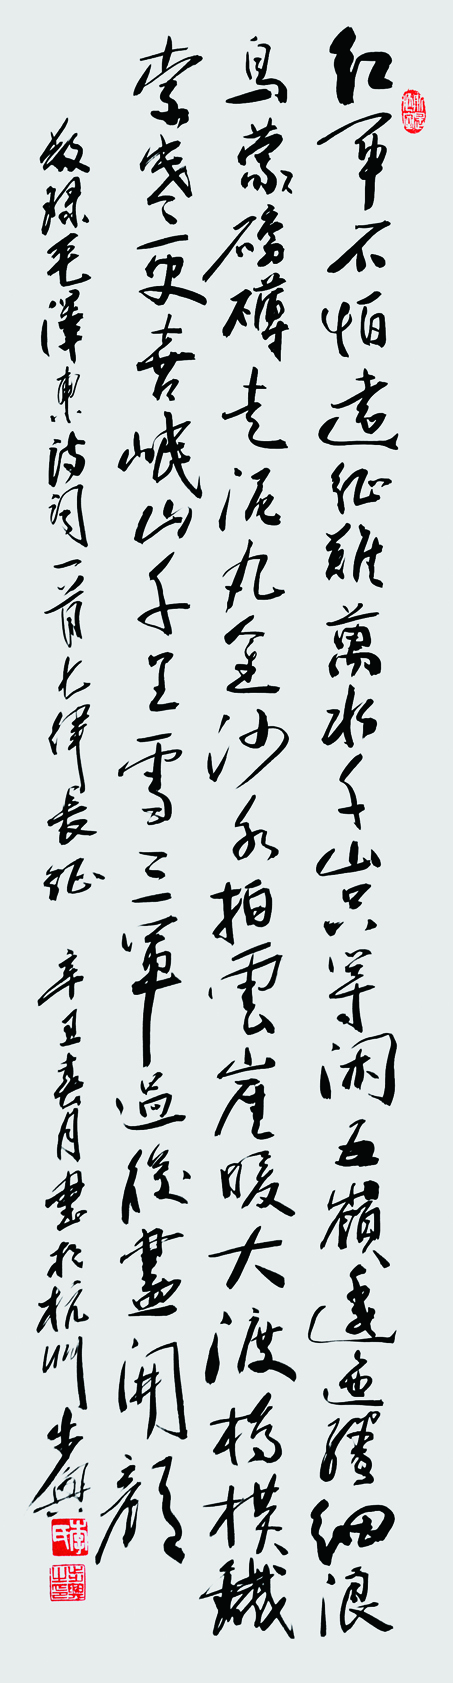 紅軍不怕遠征難萬水千山只等閑五嶺逶迤騰細浪
烏蒙磅礴走泥丸金沙水拍雲崖暖大渡橋横鐵
索寒更喜岷山千里雪三軍過後盡開顔
敬録毛澤東詩詞一首七律長征 辛丑春月書於杭州 步興